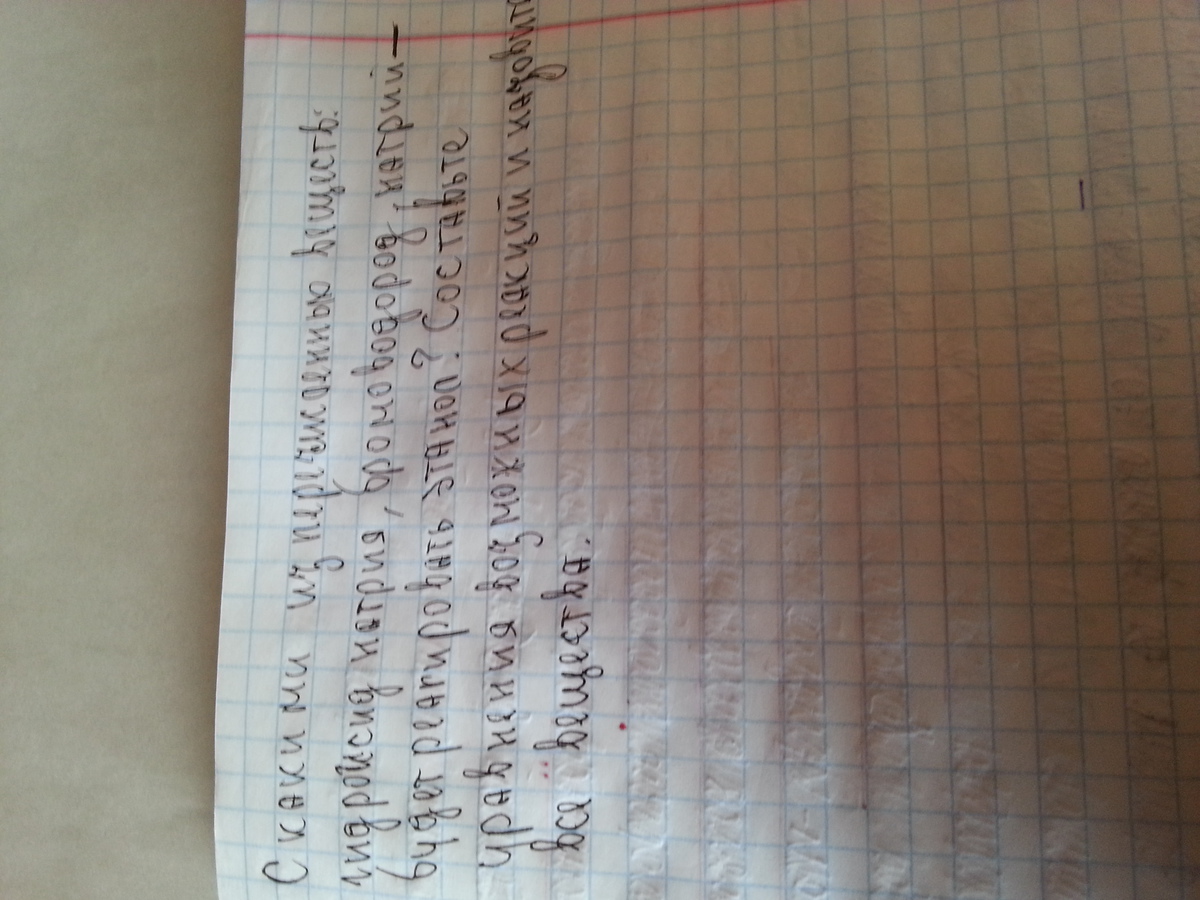 С какими из перечисленных веществ:
гидроксид натрия, бромоводород, натрий —
будет реагировать этанол? Составьте
уравнения возможных реакций и назовите
все вещества.